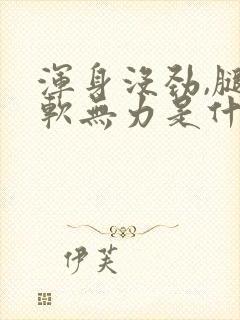 渾身沒勁,腿
軟無力是什
伊芙